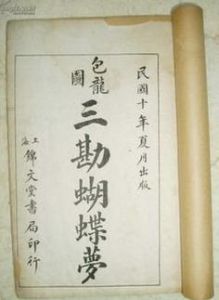 民國十年夏月出版
包龍圖
三勘蝴蝶夢
上海錦文堂書局印行